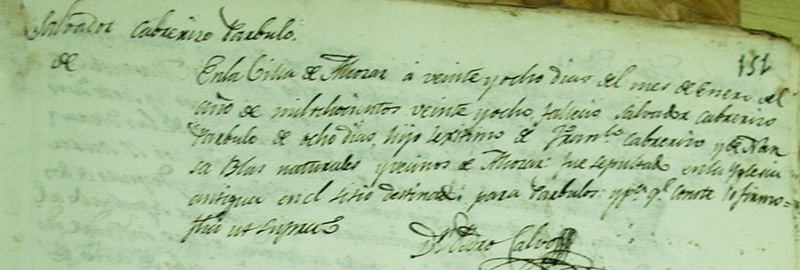 Salvador Cabrerizo Parbulo.
151
de
En la Villa de Thozar a veinte y ocho dias del mes de Enero del
año de mil ochocientos veinte y ocho, falleció Salvador Cabrerizo
Parbulo de ocho dias, hijo lexitimo de Fran.co Cabrerizo y de
Blas naturales y vecinos de Thozar: fue sepultado en la Yglesia
antigua en el sitio destinado para Parbulos y p.a q.e conste lo firmo=
fha ut supra
Dn Pedro Calvo